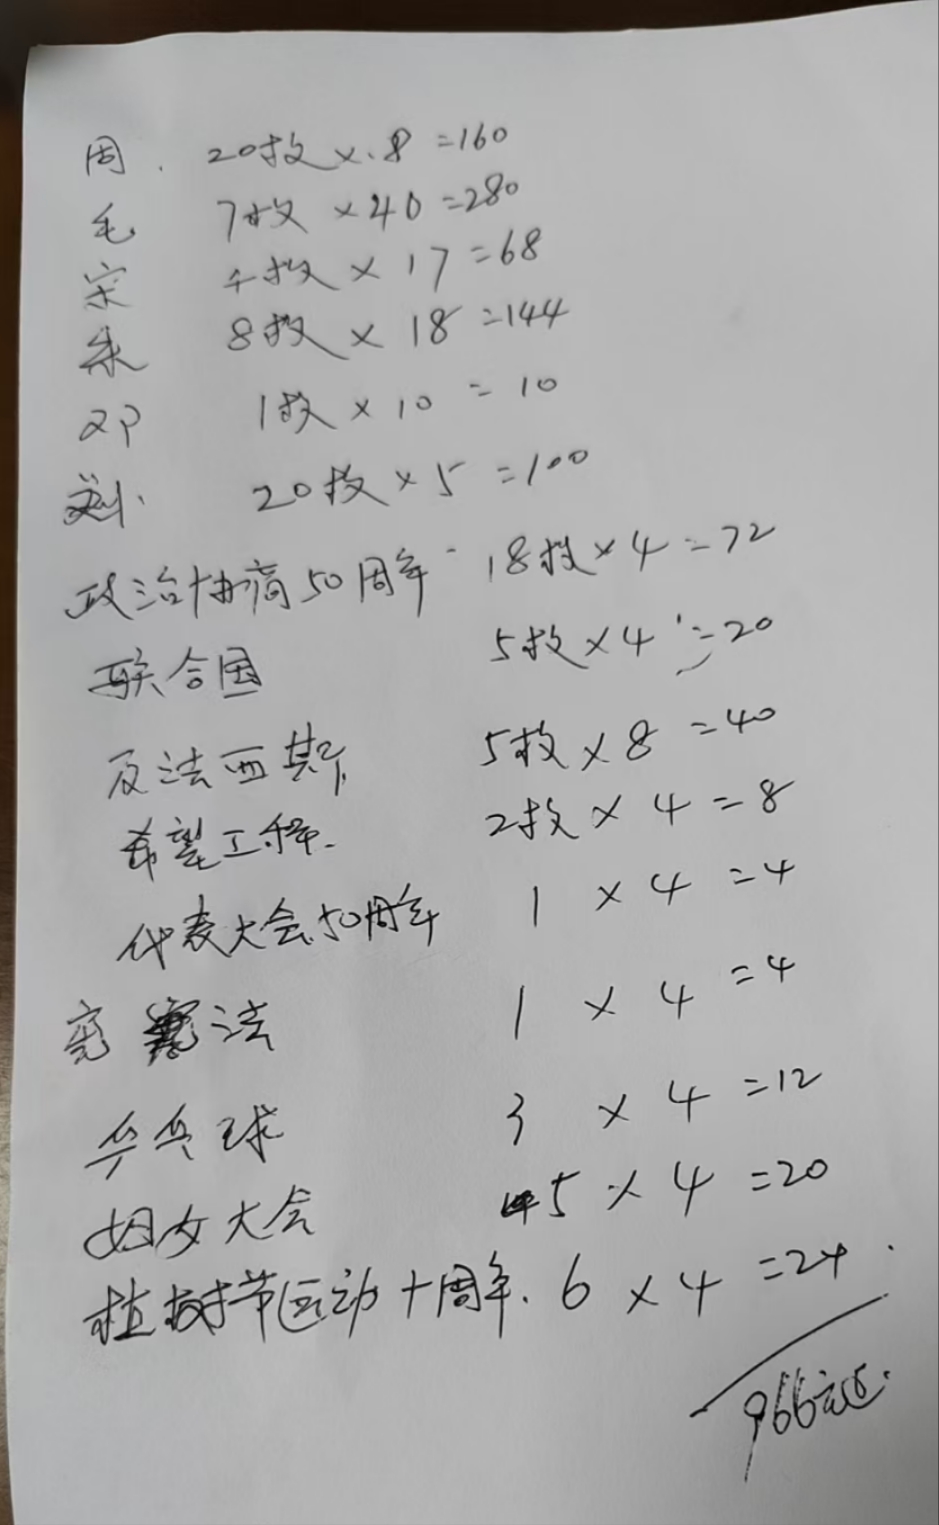 周. 20枚×.8=160
毛 7枚×40=280
宋 4枚×17=68
朱 8枚×18=144
邓 1枚×10=10
刘. 20枚×5=100
政治协商50周年 18枚×4=72
联合国 5枚×4=20
反法西斯 5枚×8=40
希望工程. 2枚×4=8
代表大会50周年 1×4=4
宪法 1×4=4
乒乓球 3×4=12
妇女大会 5×4=20
植树节运动十周年. 6×4=24.
966元